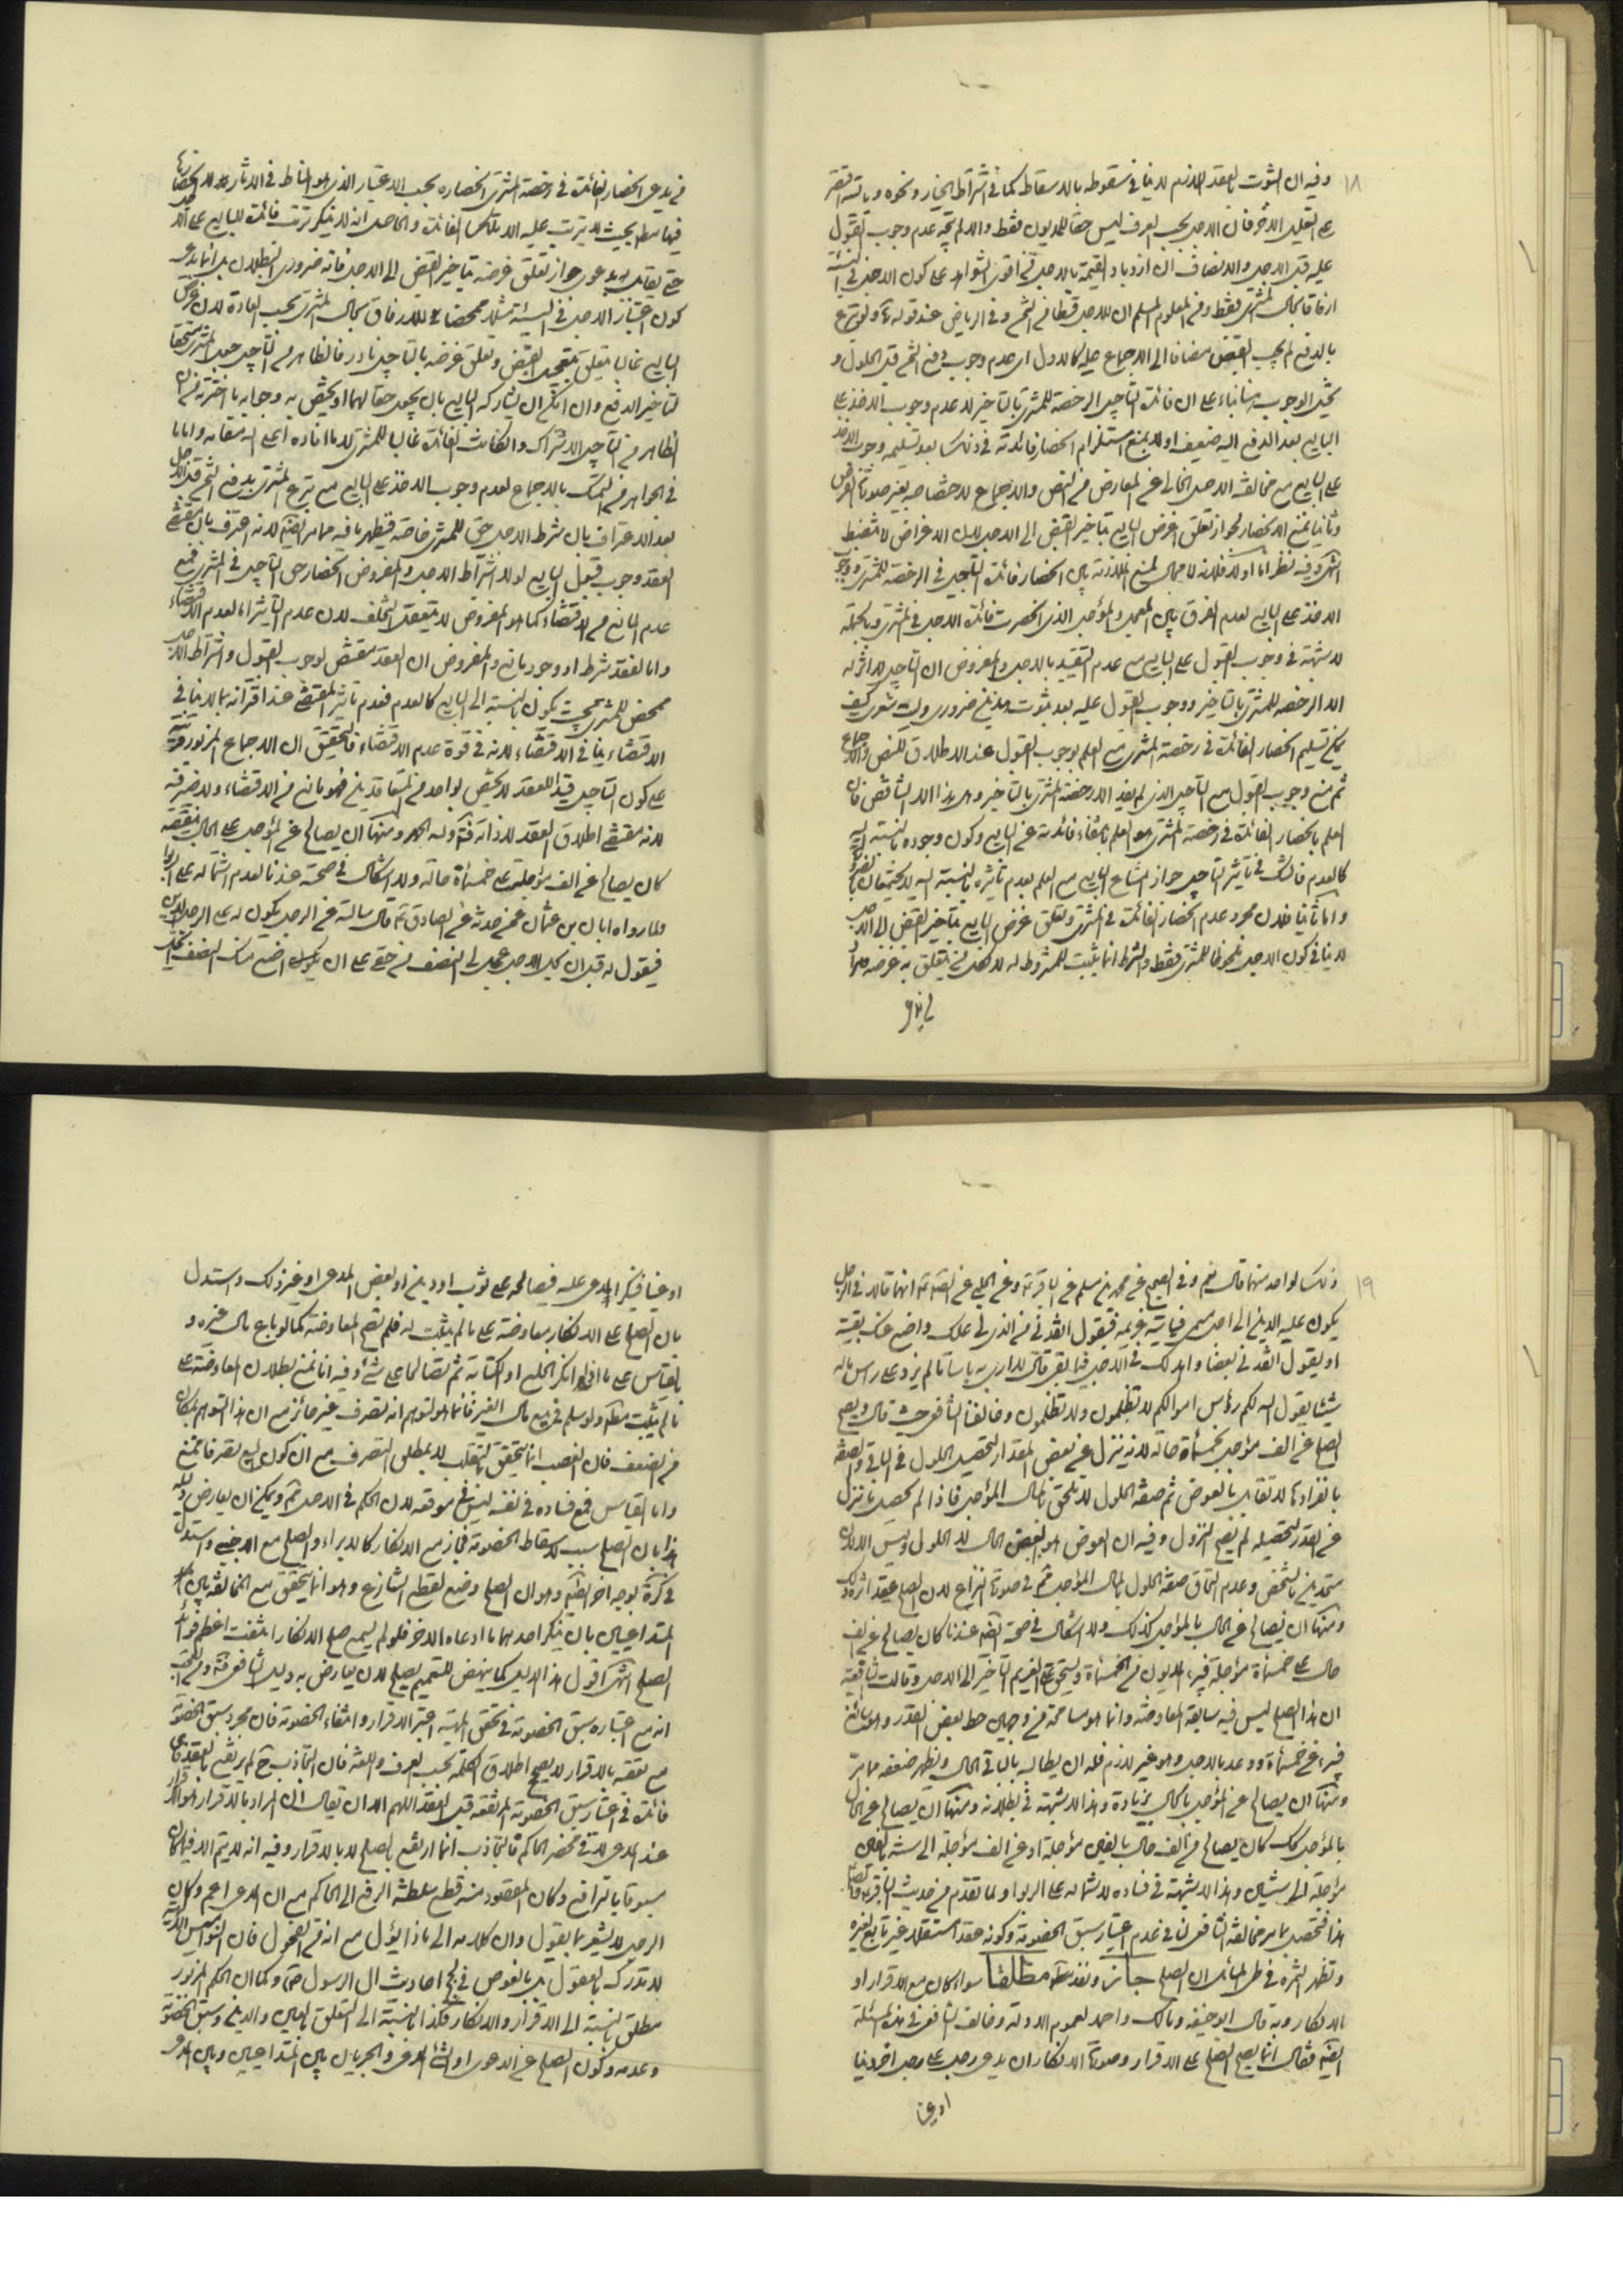 ١٨
وفيه ان الثبوت بالعقد اللازم لا ينافى سقوطه بالاسقاط كما فى اشتراط الخيار ونحوه
على التعليل الاخر فان الاجل بحسب العرف ليس حقا للمديون فقط والا لم يتجه عدم وجوب القبول
عليه قبل الاجل والانصاف ان ازدياد القيمة بالاجل من اقوى الشواهد على كون الاجل فى النسيئة
ارفاقا بحال المشترى فقط ومن المعلوم المسلم ان للاجل قسطا من الثمن وفى الرياض عند قوله ولو تبرع
بالدفع لم يجب القبض مضافا الى الاجماع عليه كالاول اى عدم وجوب دفع الثمن قبل الحلول و
يحتمل الوجوب هنا بناء على ان فائدة التاجيل الرخصة للمشترى بالتاخير لا عدم وجوب الاخذ على
البايع بعد الدفع اليه ضعيف اولا بمنع استلزام انحصار فائدته فى ذلك بعد تسليمه وجوب الاخذ
على البايع مع مخالفته الاصل الخالى عن المعارض من النص والاجماع لاختصاصه بغير صورة الفرض
وثانيا بمنع الانحصار لجواز تعلق غرض البايع بتاخير القبض الى الاجل لان الاغراض لا تنضبط
انتهى وفيه نظر اما اولا فلانه لا مجال لمنع الملازمة بين انحصار فائدة التاجيل فى الرخصة للمشترى ووجوب
الاخذ على البايع لعدم الفرق بين المعجل والمؤجل الذى انحصرت فائدة الاجل فى المشترى وبالجملة
لا شبهة فى وجوب القبول على البايع مع عدم التقييد بالاجل والمفروض ان التاجيل لا اثر له
الا الرخصة للمشترى بالتاخير ووجوب القبول عليه بعد ثبوت هذين ضرورى وليت شعرى كيف
يمكن تسليم انحصار الفائدة فى رخصة المشترى مع العلم بوجوب القبول عند الاطلاق للنص والاجماع
ثم منع وجوب القبول مع التاجيل الذى لم يفد الا رخصة المشترى بالتاخير وهل هذا الا التناقض فان
العلم بانحصار الفائدة فى رخصة المشترى هو العلم بانتفاء فائدته عن البايع وكون وجوده بالنسبة اليه
كالعدم فالشك فى تاثير التاجيل جواز امتناع البايع مع العلم بعدم تاثيره بالنسبة اليه لا يجتمعان
واما ثانيا فلان مجرد عدم انحصار الفائدة فى المشترى وتعلق غرض البايع بتاخير القبض الى الاجل
لا ينافى كون الاجل ملحوظا للمشترى فقط والشرط انما يثبت للمشروط له لا لكل من يتعلق به غرضه
من يدعى انحصار الفائدة فى رخصة المشترى انحصاره بحسب الاعتبار الذى هو المناط فى الاثار لا انحصارها
فيها بحيث لا يترتب عليه الا تلك الفائدة والحاصل انه لا ينكر ترتب فائدة للبايع على الاجل
حتى يقابل بدعوى جواز تعلق غرضه بتاخير القبض الى الاجل فانه ضرورى البطلان بل انما يدعى
كون اعتبار الاجل فى النسيئة مثلا متمحضا للارفاق بحال المشترى بحسب العادة لان غرض
البايع غالبا يتعلق بتعجيل القبض وتعلق غرضه بالتاجيل نادر فالظاهر من التاجيل جعل المشترى مستحقا
لتاخير الدفع وان امكن ان يشاركه البايع بان يجعل حقا لهما او يختص به
الظاهر من التاجيل الاشتراك وان كانت الفائدة غالبا للمشترى لا ما افاده اعلى الله مقامه واما ما
فى الجواهر من التمسك بالاجماع لعدم وجوب الاخذ على البايع مع تبرع المشترى بدفع الثمن قبل الاجل
بعد الاعتراف بان شرط الاجل حق للمشترى خاصة فيظهر ما فيه مما مر ايضا لانه اعترف بان مقتضى
العقد وجوب قبول البايع لولا اشتراط الاجل والمفروض انحصار حق التاجيل فى المشترى فمنع
عدم المانع من الاقتضاء كما هو المفروض لا يتعقل التخلف لان عدم التاثير اما لعدم الاقتضاء
واما لفقد شرط او وجود مانع والمفروض ان العقد مقتض لوجوب القبول واشتراط الاجل
محض للمشترى بحيث يكون بالنسبة الى البايع كالعدم فعدم تاثير المقتضى عند اقترانه بما لا ينافى
الاقتضاء ينافى الاقتضاء لانه فى قوة عدم الاقتضاء فالتحقيق ان الاجماع المزبور
على كون التاجيل قيدا للعقد لا يختص بواحد من المتعاقدين فهو مانع من الاقتضاء
لانه مقتضى اطلاق العقد لا ذاته ومنها ان يصالح عن المؤجل على الحال بنقيصة
كان يصالح عن الف مؤجلة على خمسمأة حالة ولا اشكال فى صحته عندنا لعدم اشتماله على الربا
ولما رواه ابان بن عثمان عمن حدثه عن الصادق ع قال سالته عن الرجل يكون له على الرجل الدين
فيقول له قبل ان يحل الاجل عجل لى النصف من حقى على ان اضع عنك النصف ايحل
١٩
ذلك لواحد منهما قال نعم وفى الصحيح عن محمد بن مسلم عن الباقر ع وعن الحلبى عن الصادق ع انهما قالا فى الرجل
يكون عليه الدين الى اجل مسمى فياتيه غريمه فيقول انقدنى من الذى لى عليك واضع عنك بقيته
او يقول انقدنى بعضا وامد لك فى الاجل فيما بقى قال لا ارى به باسا ما لم يزد على راس ماله
شيئا يقول الله لكم رؤس اموالكم لا تظلمون ولا تظلمون وخالف الشافعى حيث قال ويصح
الصلح عن الف مؤجل بخمسمأة حالة لانه ينزل عن بعض المقدار لتحصيل الحلول فى الباقى والصفة
بانفرادها لا تقابل بالعوض ثم صفة الحلول لا تلحق بالمال المؤجل فاذا لم يحصل ما نزل
عن القدر لتحصيله لم يصح النزول وفيه ان العوض هو البعض الحال لا الحلول
متحدين بالشخص وعدم التحاق صفة الحلول بالمال المؤجل فى صورة النزاع لان الصلح عقد اثره ذلك
ومنها ان يصالح عن الحال بالمؤجل كذلك ولا اشكال فى صحته ايضا عندنا كان يصالح عن الف
حال على خمسمأة مؤجلة فيبرء المديون من الخمسمأة ويستحق على الغريم التاخير الى الاجل وقالت الشافعية
ان هذا الصلح ليس فيه شايبة المعاوضة وانما هو مسامحة من وجهين حط بعض القدر
فيبرء عن خمسمأة ووعد بالاجل وهو غير لازم فله ان يطالبه بالباقى فى الحال ويظهر ضعفه مما مر
ومنها ان يصالح عن المؤجل بالحال بزيادة وهذا لا شبهة فى بطلانه ومنها ان يصالح عن الحال
بالمؤجل كذلك كان يصالح من الف حال بالفين مؤجلة او عن الف مؤجلة الى سنة بالفين
مؤجلة الى سنتين وهذا لا شبهة فى فساده لاشتماله على الربوا ولما تقدم من حديث الباقر
هذا فتحصل مما مر مخالفة الشافعى لنا فى عدم اعتبار سبق الخصومة وكونه عقدا مستقلا غير تابع لغيره
وتظهر الثمرة فى طى المسائل ان الصلح جائز ونفذ مطلقا سواء كان مع الاقرار او
الانكار وبه قال ابو حنيفة ومالك واحمد لعموم الادلة وخالف الشافعى فى هذه المسئلة
ايضا فقال انما يصح الصلح على الاقرار وصورة الانكار ان يدعى رجل على رجل اخر دينا
او عينا
او عينا فينكر المدعى عليه فيصالحه على ثوب او دين او بعض المدعى او غير ذلك واستدل
بان الصلح على الانكار معاوضة على ما لم يثبت له فلم تصح المعاوضة كما لو باع مال غيره و
بالقياس على ما اذا انكر الخلع او الكتابة ثم تصالحا على شئ وفيه انا نمنع بطلان المعاوضة على
ما لم يثبت ولو سلم فى بيع مال الغير فانما هو لتوهم انه تصرف غير جائز مع ان هذا التوهم بمكان
من الضعف فان الغصب انما يتحقق بالتقلب لا بمطلق التصرف مع ان كون البيع تصرفا ممنوع
واما القياس فمع فساده فى نفسه ليس فى موقعه لان الحكم فى الاصل ويمكن ان يعارض
هذا بان الصلح سبب لاسقاط الخصومة فجاز مع الانكار كالابراء والصلح مع الاجنبى واستدل
فى كره بوجه اخر ايضا وهو ان الصلح وضع لقطع التنازع وهو انما يتحقق مع المخالفة بين
المتداعيين بان ينكر احدهما ما ادعاه الاخر فلو لم يسمع صلح الانكار انتفت اعظم فوائد
الصلح انتهى اقول هذا الدليل كما ينهض للتعميم يصلح لان يعارض به دليل الشافعى
انه مع اعتباره سبق الخصومة فى تحقق الماهية اعتبر الاقرار وانتفاء الخصومة فان مجرد سبق الخصومة
مع تعقبه بالاقرار لا يصحح اطلاق الكلمة بحسب العرف واللغة فان التجاذب لم يرتفع بالعقد
فائدة فى اعتبار سبق الخصومة المرتفعة قبل العقد اللهم الا ان يقال ان المراد بالاقرار هو الاقرار
عند المدعى لا فى محضر الحاكم فالتجاذب انما ارتفع بالصلح لا بالاقرار وفيه انه لا يتم الا فيما كان
مسبوقا بالترافع وكان المقصود منه قطع سلطنة الرفع الى الحاكم مع ان المدعى اعم وكان
الرجل لا يشعر بما يقول وان كلامه الى ماذا يؤل مع انه من الفحول فان النواميس الالهية
لا تدرك بالعقول بل بالغوص فى لجج احاديث ال الرسول ص وكما ان الحكم المزبور
مطلق بالنسبة الى الاقرار والانكار فكذا بالنسبة الى التعلق بالعين والدين وسبق الخصومة
وعدمه وكون الصلح عن الدعوى او الشئ المدعى والجريان بين المتداعيين وبين المدعى